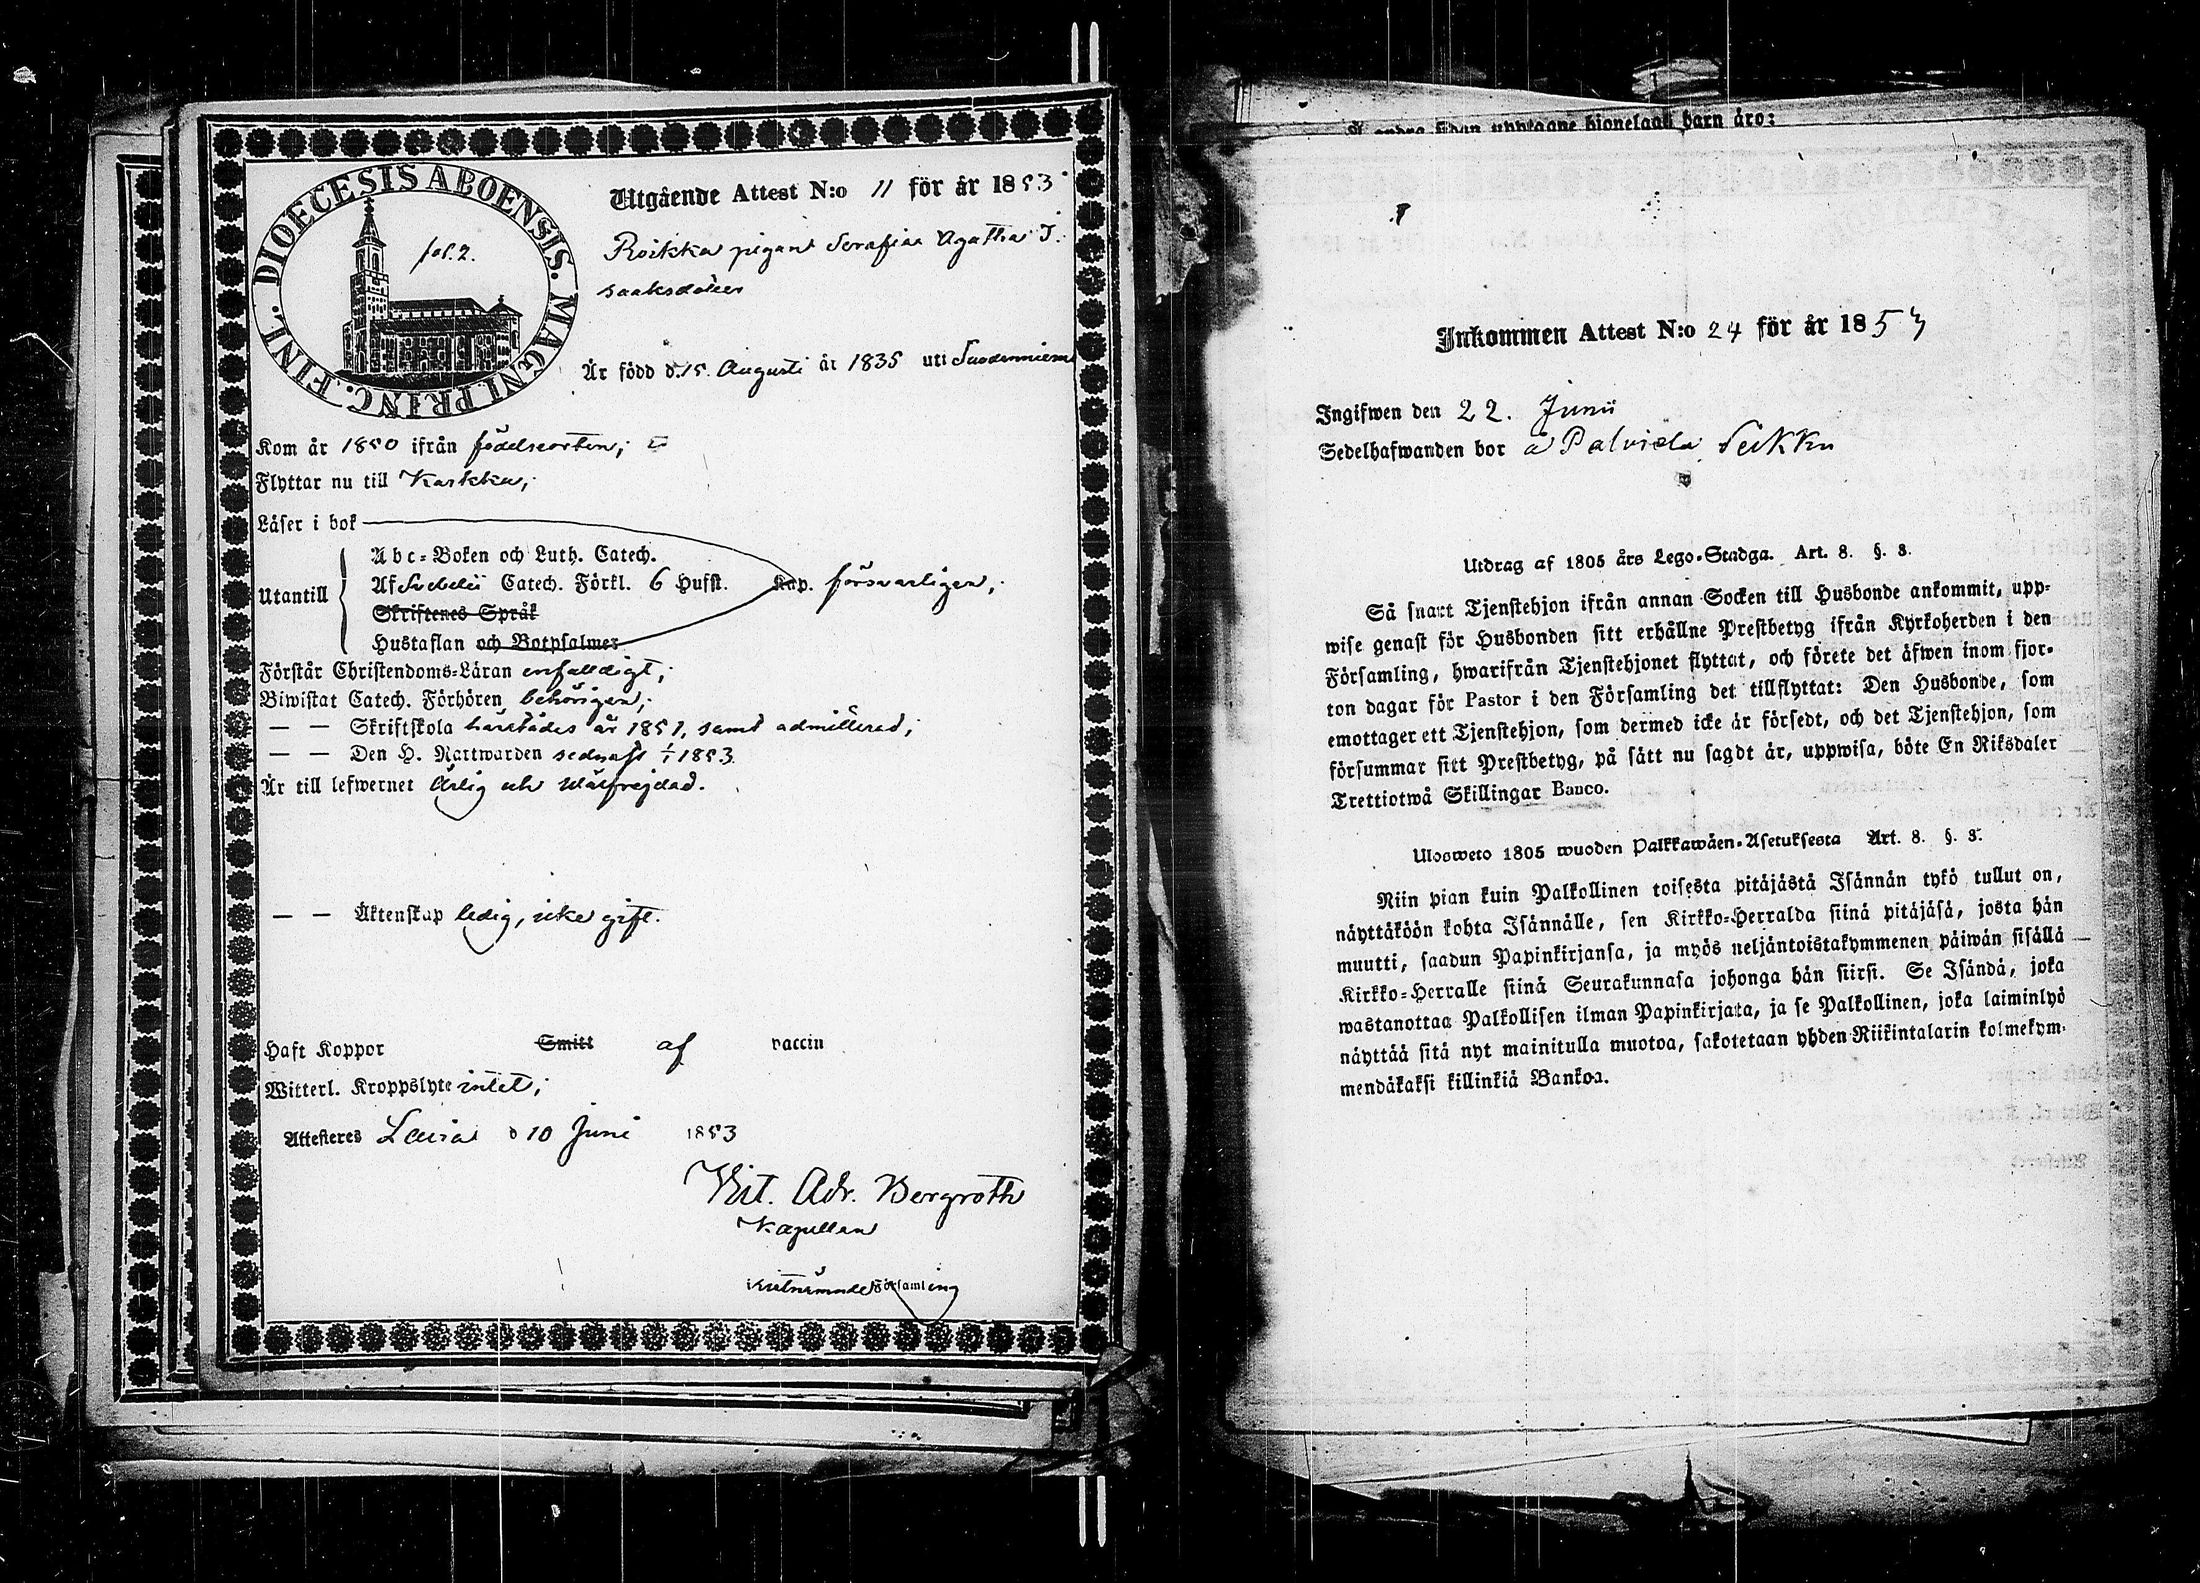 DIOECESIS ABOENSIS. MAGNI. PRINC. FINL.
fol. 2.
Utgående Attest N:o 11 för år 1853
Roikka pigan Serafiaa Agatha I.
saaksdoter
Är född d. 15. Augusti år 1835 uti Suodenniemi
Kom år 1850 ifrån födelseorten;
Flyttar nu till Karkku;
Läser i bok
Utantill
Abc-Boken och Luth. Catech.
Af Svebelii Catech. Förkl. 6 Hufst. Kap. försvarligen;
Skriftenes Språk
Hustaflan och Botpsalmer
Förstår Christendoms-Läran enfaldigt;
Biwistat Catech. Förhören behörigen;
— — Skriftskola härstädes år 1851, samt admitterad;
— — Den H. Nattwarden sednast 1853.
Är till lefwernet Ärlig och wälfrejdad.
— — Äktenskap ledig, icke gift.
Haft Koppor Smitt af vaccin
Witterl. Kroppslyte intet;
Attesteres Lavia d 10 Juni 1853
Vit. Adr. Bergroth
Kapellan
Församling
Å andra sidan upptagne hjonelags barn äro:
Inkommen Attest N:o 24 för år 1853
Ingifwen den 22. Junii
Sedelhafwanden bor å Palviala Sukku
Utdrag af 1805 års Lego-Stadga. Art. 8. §. 3.
Så snart Tjenstehjon ifrån annan Socken till Husbonde ankommit, upp-
wise genast för Husbonden sitt erhållne Prestbetyg ifrån Kyrkoherden i den
Församling, hwarifrån Tjenstehjonet flyttat, och förete det äfwen inom fjor-
ton dagar för Pastor i den Församling det tillflyttat: Den Husbonde, som
emottager ett Tjenstehjon, som dermed icke är försedt, och det Tjenstehjon, som
försummar sitt Prestbetyg, på sätt nu sagdt är, uppwisa, böte En Riksdaler
Trettiotwå Skillingar Banco.
Ulosweto 1805 wuoden Palkkawäen-Asetuksesta Art. 8. §. 3.
Niin pian kuin Palkollinen toisesta pitäjästä Isännän tykö tullut on,
näyttäköön kohta Isännälle, sen Kirkko-Herralda siinä pitäjäsä, josta hän
muutti, saadun Papinkirjansa, ja myös neljäntoistakymmenen päiwän sisällä
Kirkko-Herralle siinä Seurakunnasa johonga hän siirsi. Se Isändä, joka
wastanottaa Palkollisen ilman Papinkirjata, ja se Palkollinen, joka laiminlyö
näyttää sitä nyt mainitulla muotoa, sakotetaan yhden Riikintalarin kolmekym-
mendäkaksi killinkiä Bankoa.